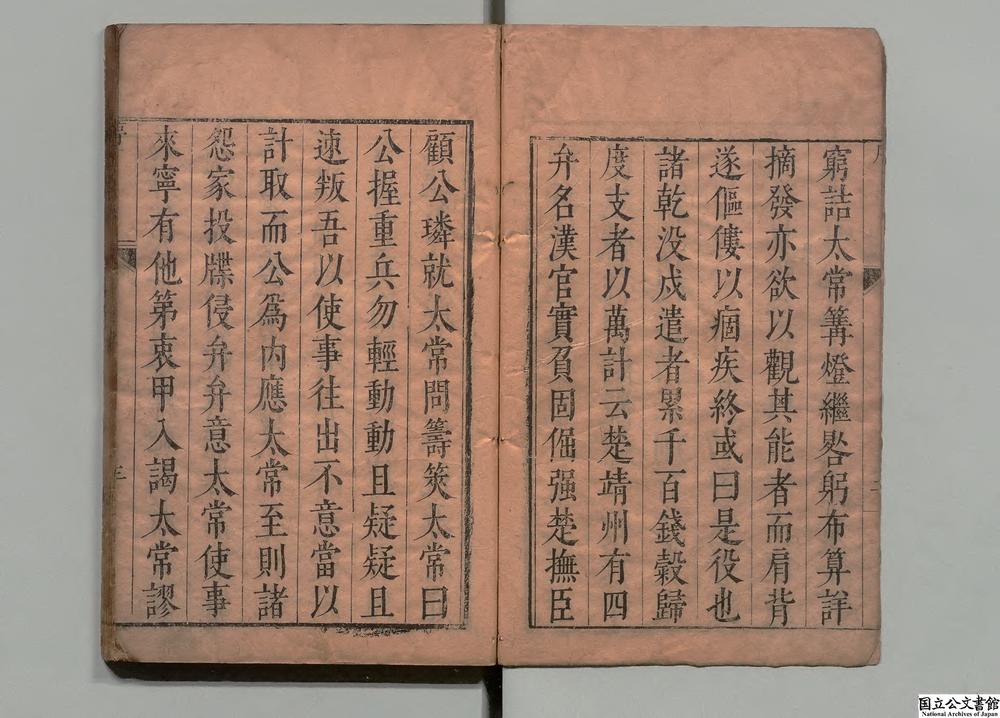 窮詰太常篝燈繼晷躬布算詳
摘發亦欲以觀其能者而肩背
遂傴僂以痼疾終或曰是役也
諸乾没戍遣者累千百錢穀歸
度支者以萬計云楚靖州有四
弁名漢官實負固倔强楚撫臣
顧公璘就太常問籌筴太常曰
公握重兵勿輕動動且疑疑且
速叛吾以使事往出不意當以
計取而公爲内應太常至則諸
怨家投牒侵弁弁意太常使事
來寧有他第衷甲入謁太常謬
国立公文書館
National Archives of Japan